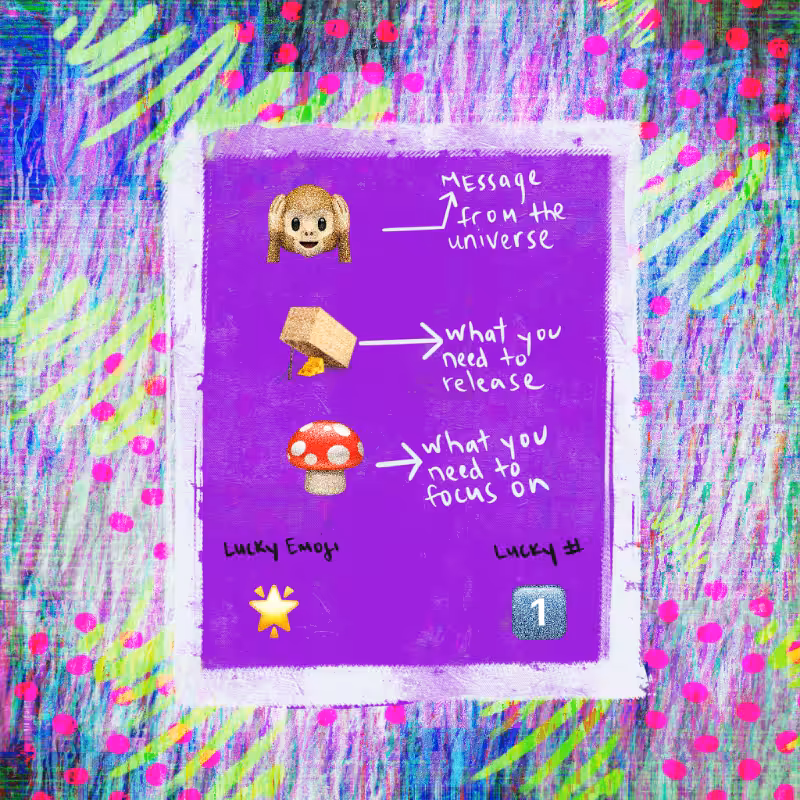 Message
from the
universe
what you
need to
release
what you
need to
focus on
Lucky Emoji
Lucky #
1